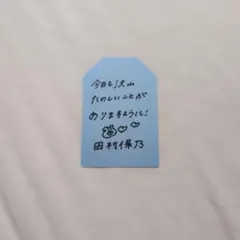 今日も沢山
たのしいことが
ありますように！
田村保乃